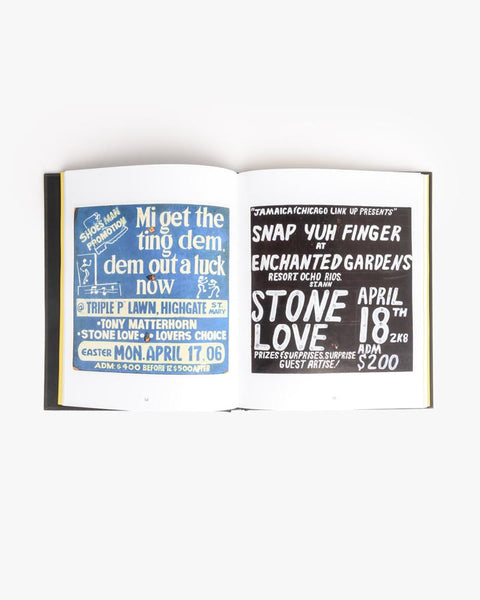 SHOES MAN
PROMOTION
Mi get the
ting dem,
dem out a luck
now
@ TRIPLE P LAWN, HIGHGATE ST. MARY
• TONY MATTERHORN
• STONE LOVE • LOVERS CHOICE
EASTER MON. APRIL 17.06
ADM: $400 BEFORE 12 $500 AFTER
"JAMAICA/CHICAGO LINK UP PRESENTS"
SNAP YUH FINGER
AT
ENCHANTED GARDENS
RESORT OCHO RIOS.
ST. ANN
STONE
LOVE
APRIL
18TH
2K8
PRIZES & SURPRISES, SURPRISE
GUEST ARTISE/
ADM
$200